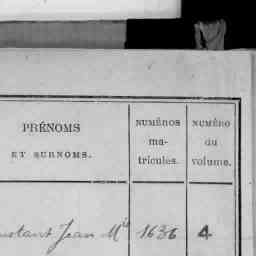 PRÉNOMS
ET SURNOMS.
NUMÉROS
ma-
tricules.
NUMÉRO
du
volume.
Jean Mie 1636 4